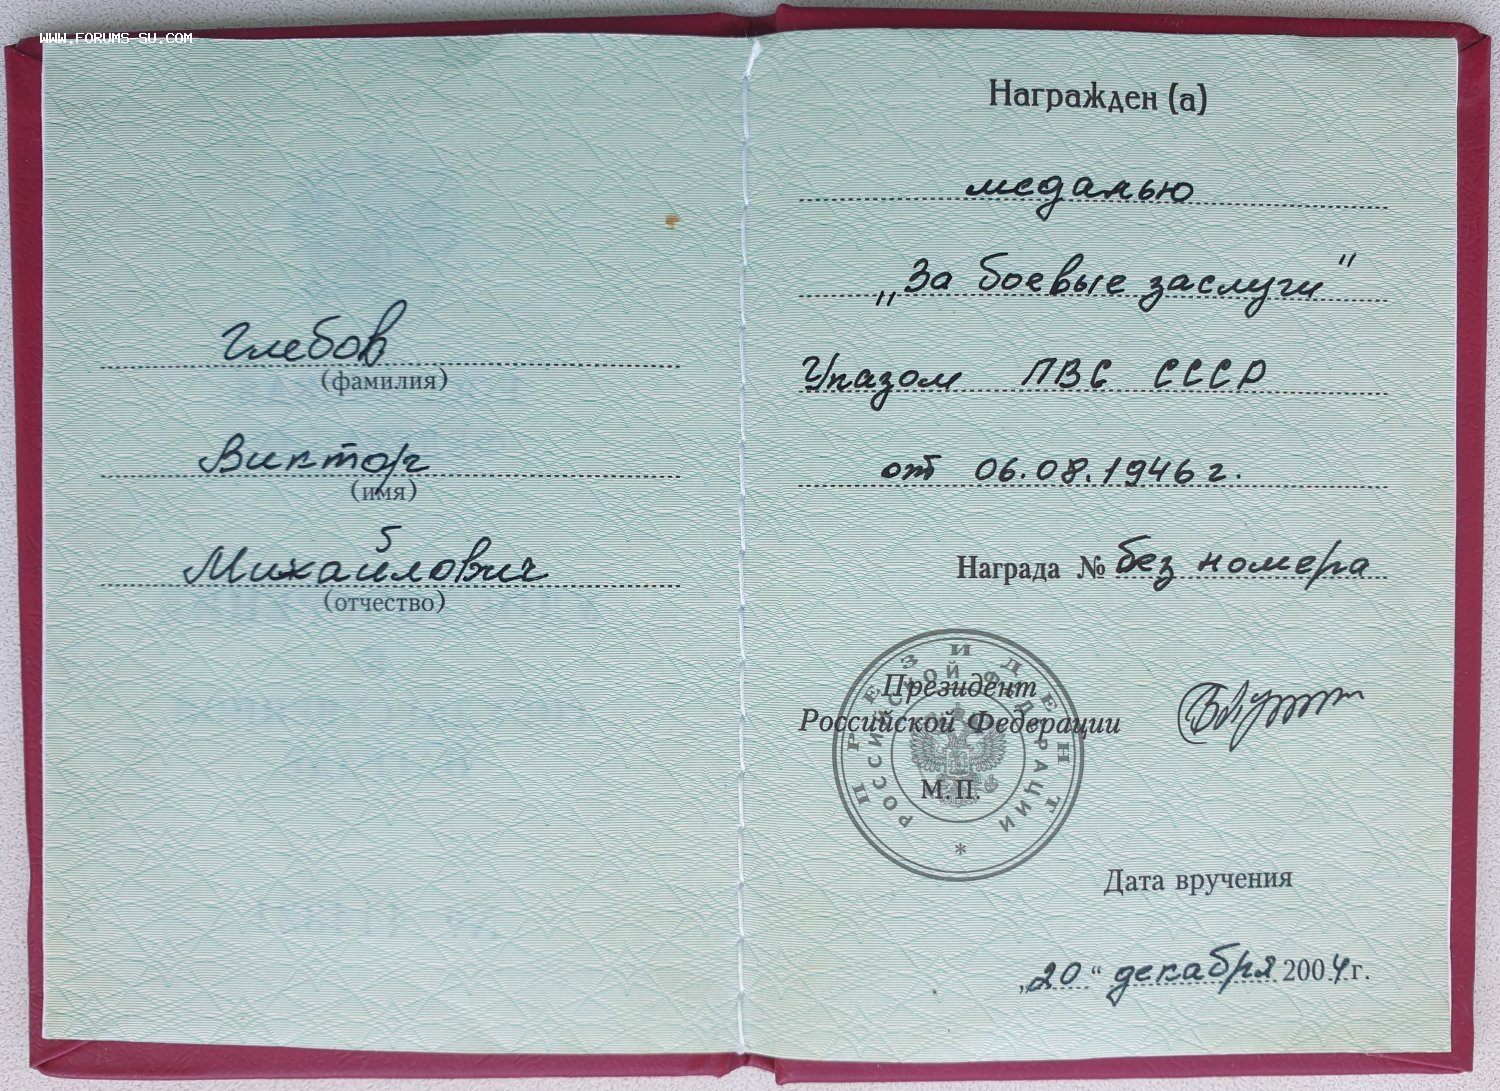 WWW.FORUMS-SU.COM
Глебов
(фамилия)
Виктор
(имя)
Михайлович
(отчество)
Награжден (а)
медалью
„За боевые заслуги"
Указом ПВС СССР
от 06.08.1946 г.
Награда № без номера
Президент
Российской Федерации
М.П.
ПРЕЗИДЕНТ
РОССИЙСКОЙ ФЕДЕРАЦИИ
*
Дата вручения
„20“ декабря 2004 г.